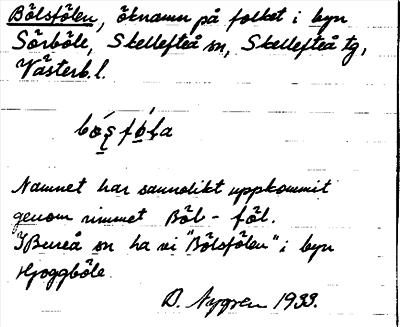 Bölsfölen, öknamn på folket i byn
Sörböle, Skellefteå sn, Skellefteå tg,
Västerb. l.
Namnet har sannolikt uppkommit
genom rimmet Böl - föl.
I Bureå sn ha vi "Bölsfölen" i byn
Hjoggböle.
D. Nygren 1933.